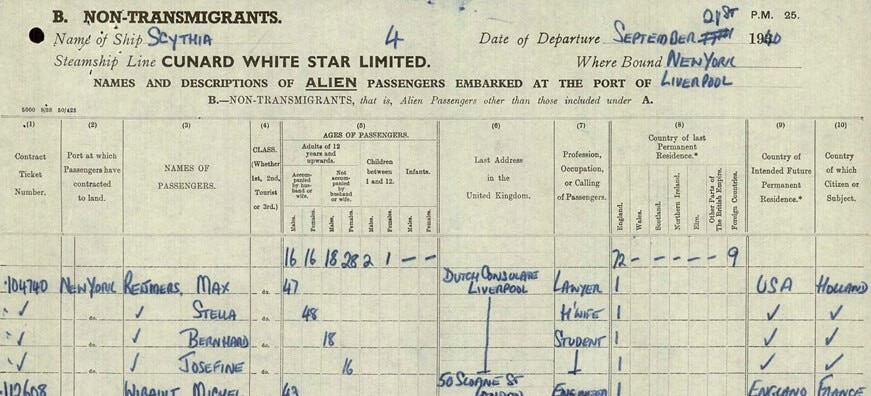 B. NON-TRANSMIGRANTS. 21ST P.M. 25.
Name of Ship SCYTHIA 4 Date of Departure SEPTEMBER 1940
Steamship Line CUNARD WHITE STAR LIMITED. Where Bound NEW YORK
NAMES AND DESCRIPTIONS OF ALIEN PASSENGERS EMBARKED AT THE PORT OF LIVERPOOL
B.—NON-TRANSMIGRANTS, that is, Alien Passengers other than those included under A.
5000 8/38 50/425
(1) (2) (3) (4) (5) (6) (7) (8) (9) (10)
Contract Ticket Number.
Port at which Passengers have contracted to land.
NAMES OF PASSENGERS.
CLASS. (Whether 1st, 2nd, Tourist or 3rd.)
AGES OF PASSENGERS.
Adults of 12 years and upwards.
Accompanied by husband or wife.
Not accompanied by husband or wife.
Children between 1 and 12.
Infants.
Males. Females. Males. Females. Males. Females. Males. Females.
Last Address in the United Kingdom.
Profession, Occupation, or Calling of Passengers.
Country of last Permanent Residence.*
England. Wales. Scotland. Northern Ireland. Eire. Other Parts of The British Empire. Foreign Countries.
Country of Intended Future Permanent Residence.*
Country of which Citizen or Subject.
16 16 18 28 2 1 – – 72 – – – – – 9
104740 NEW YORK REIJMERS, MAX do. 47 DUTCH CONSULATE LIVERPOOL LAWYER 1 USA HOLLAND
✓ do. ✓ STELLA do. 48 H'WIFE 1 ✓ ✓
✓ do. ✓ BERNHARD do. 18 STUDENT 1 ✓ ✓
✓ do. ✓ JOSEFINE do. 16 1 ✓ ✓
112608 MICHEL 43 50 SLOANE ST LONDON ENGINEER 1 ENGLAND FRANCE